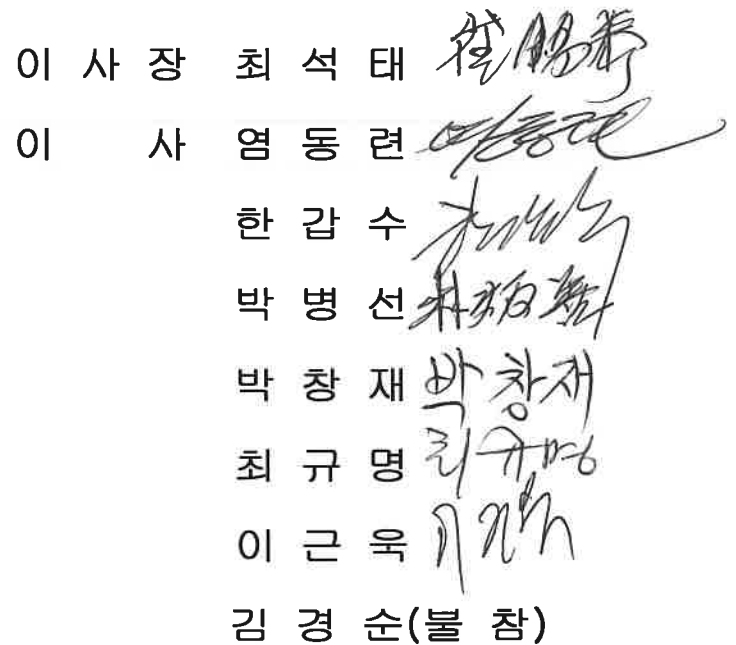 이 사 장 최 석 태
이 사 염 동 련 염동련
한 갑 수
박 병 선
박 창 재 박창재
최 규 명 최규명
이 근 욱
김 경 순(불 참)